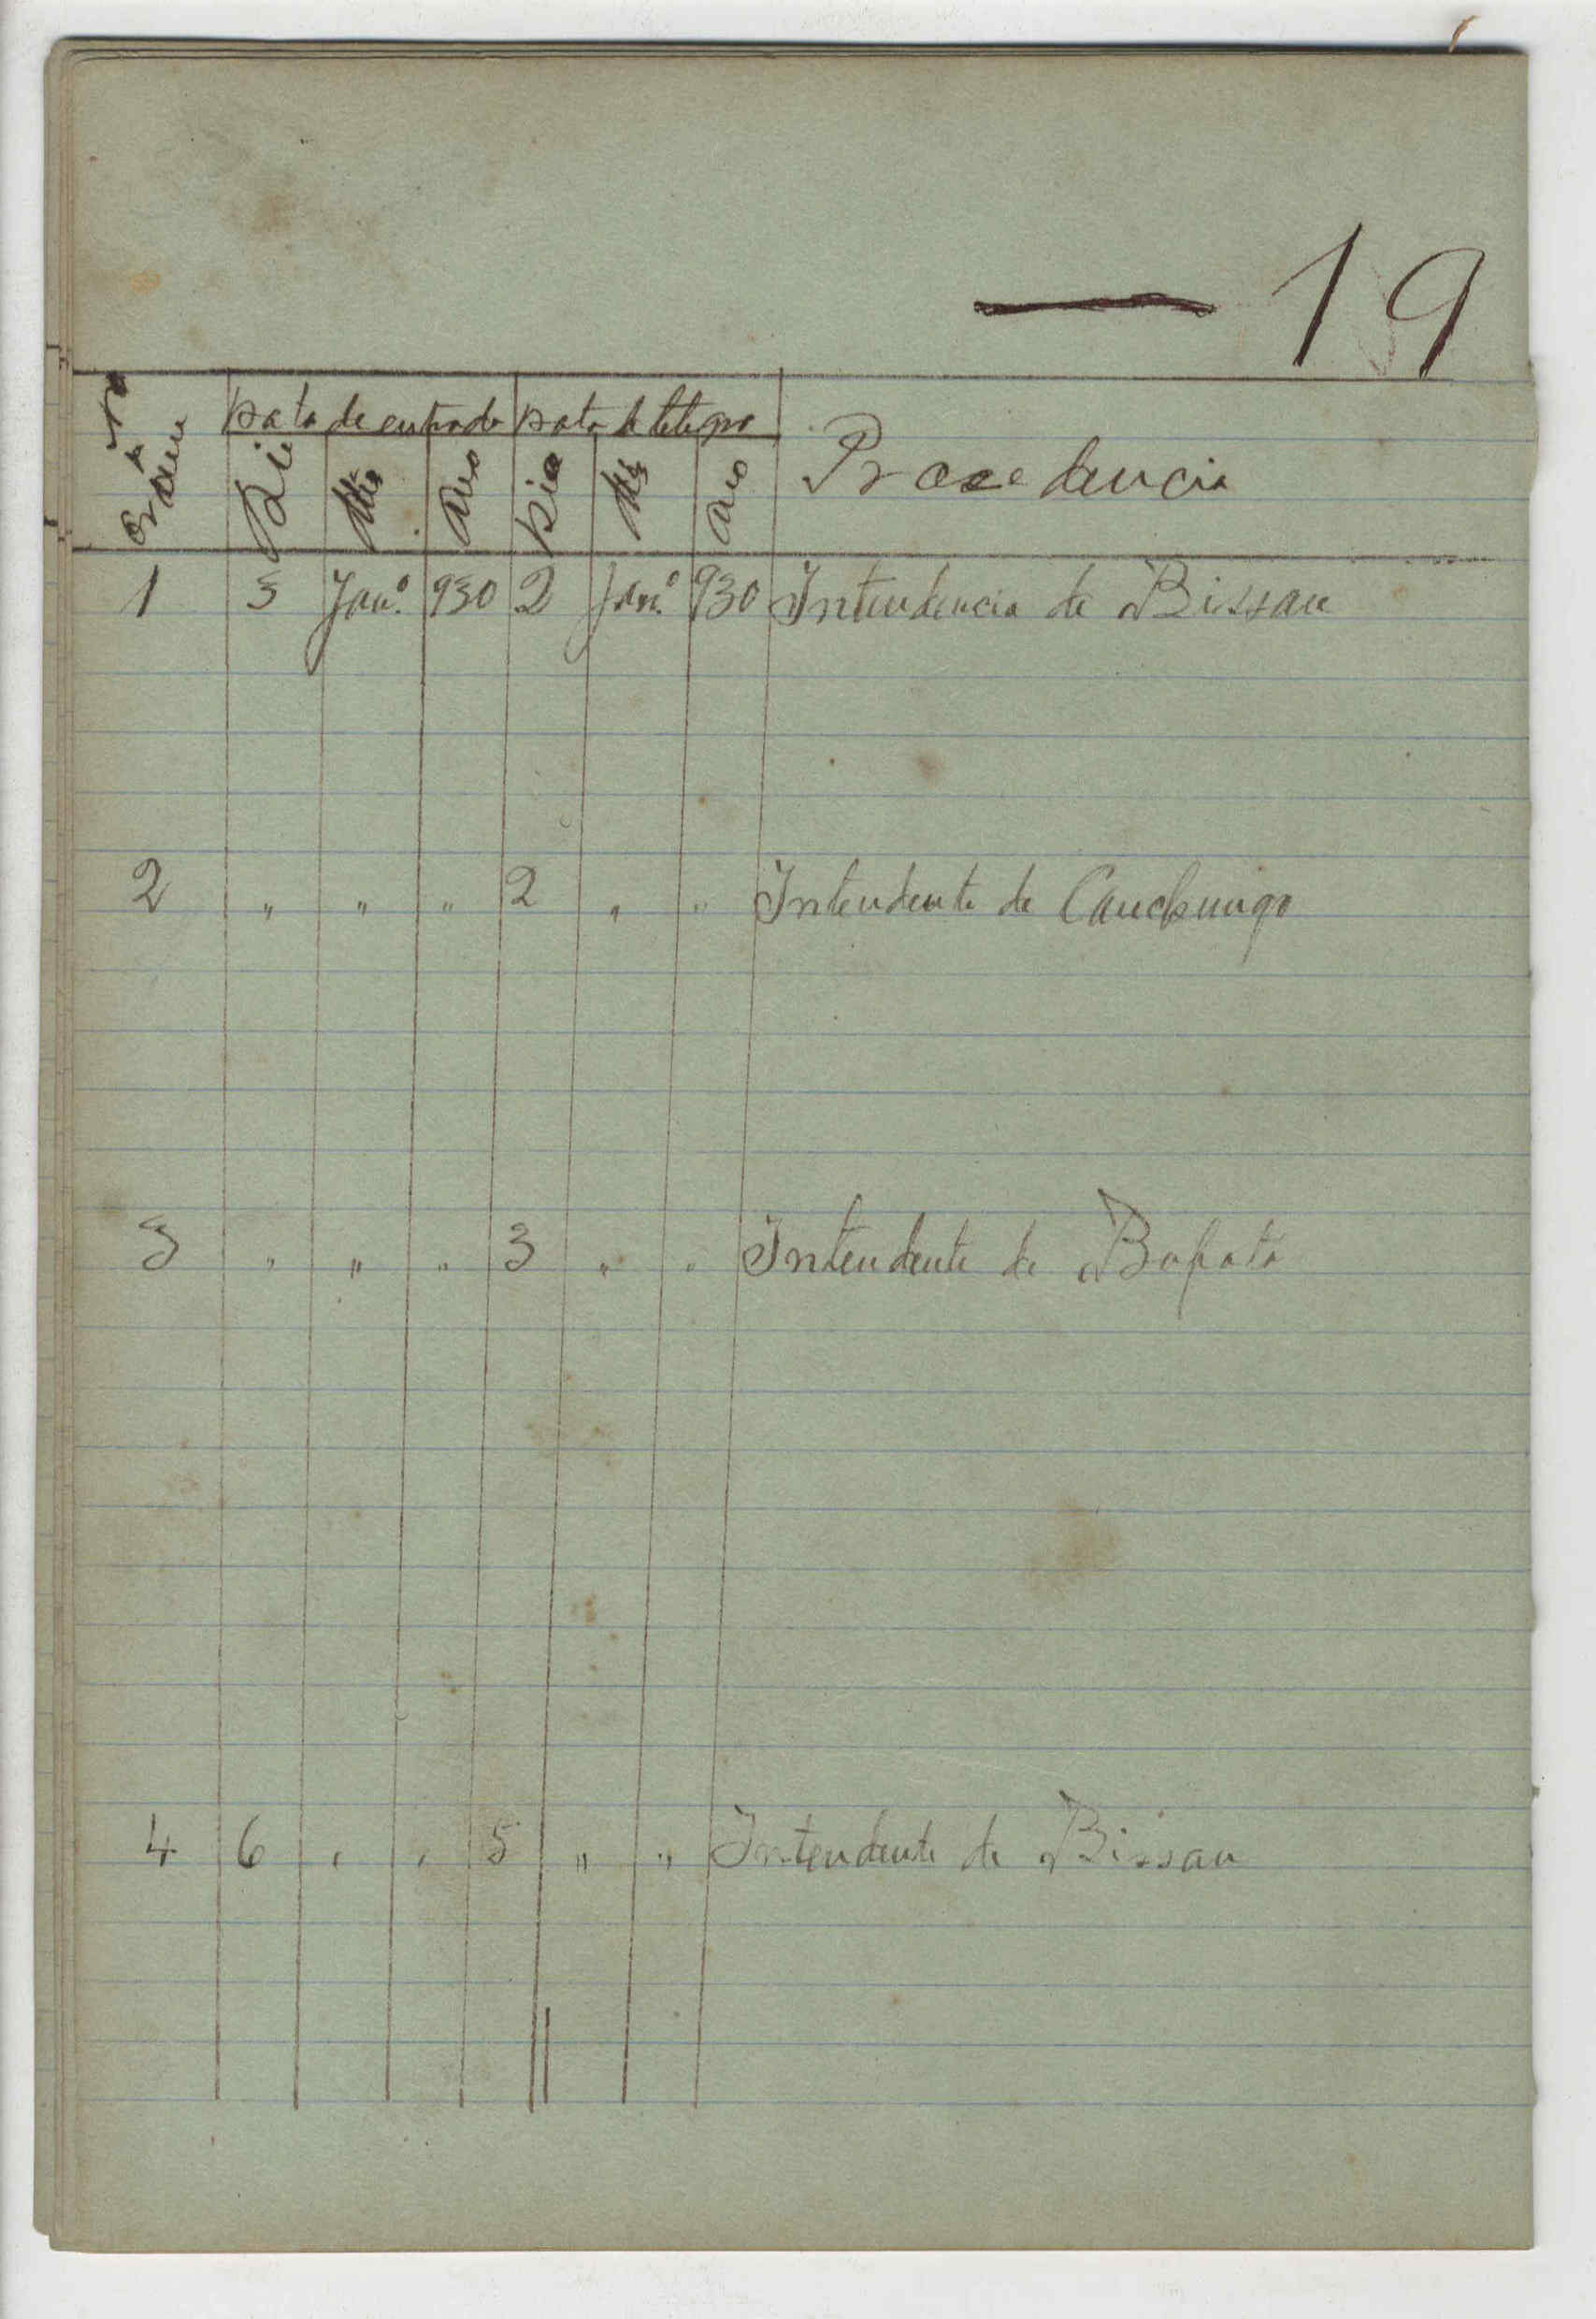 — 19
Nº de Ordem
Data de entrada Data do telegra
Dia Mês Ano Dia Mês Ano Procedencia
1 3 Janº 930 2 Janº 930 Intendencia de Bissau
2 " " " 2 " " Intendente de Canchungo
3 " " " 3 " " Intendente de Bafatá
4 6 " " 5 " " Intendente de Bissau